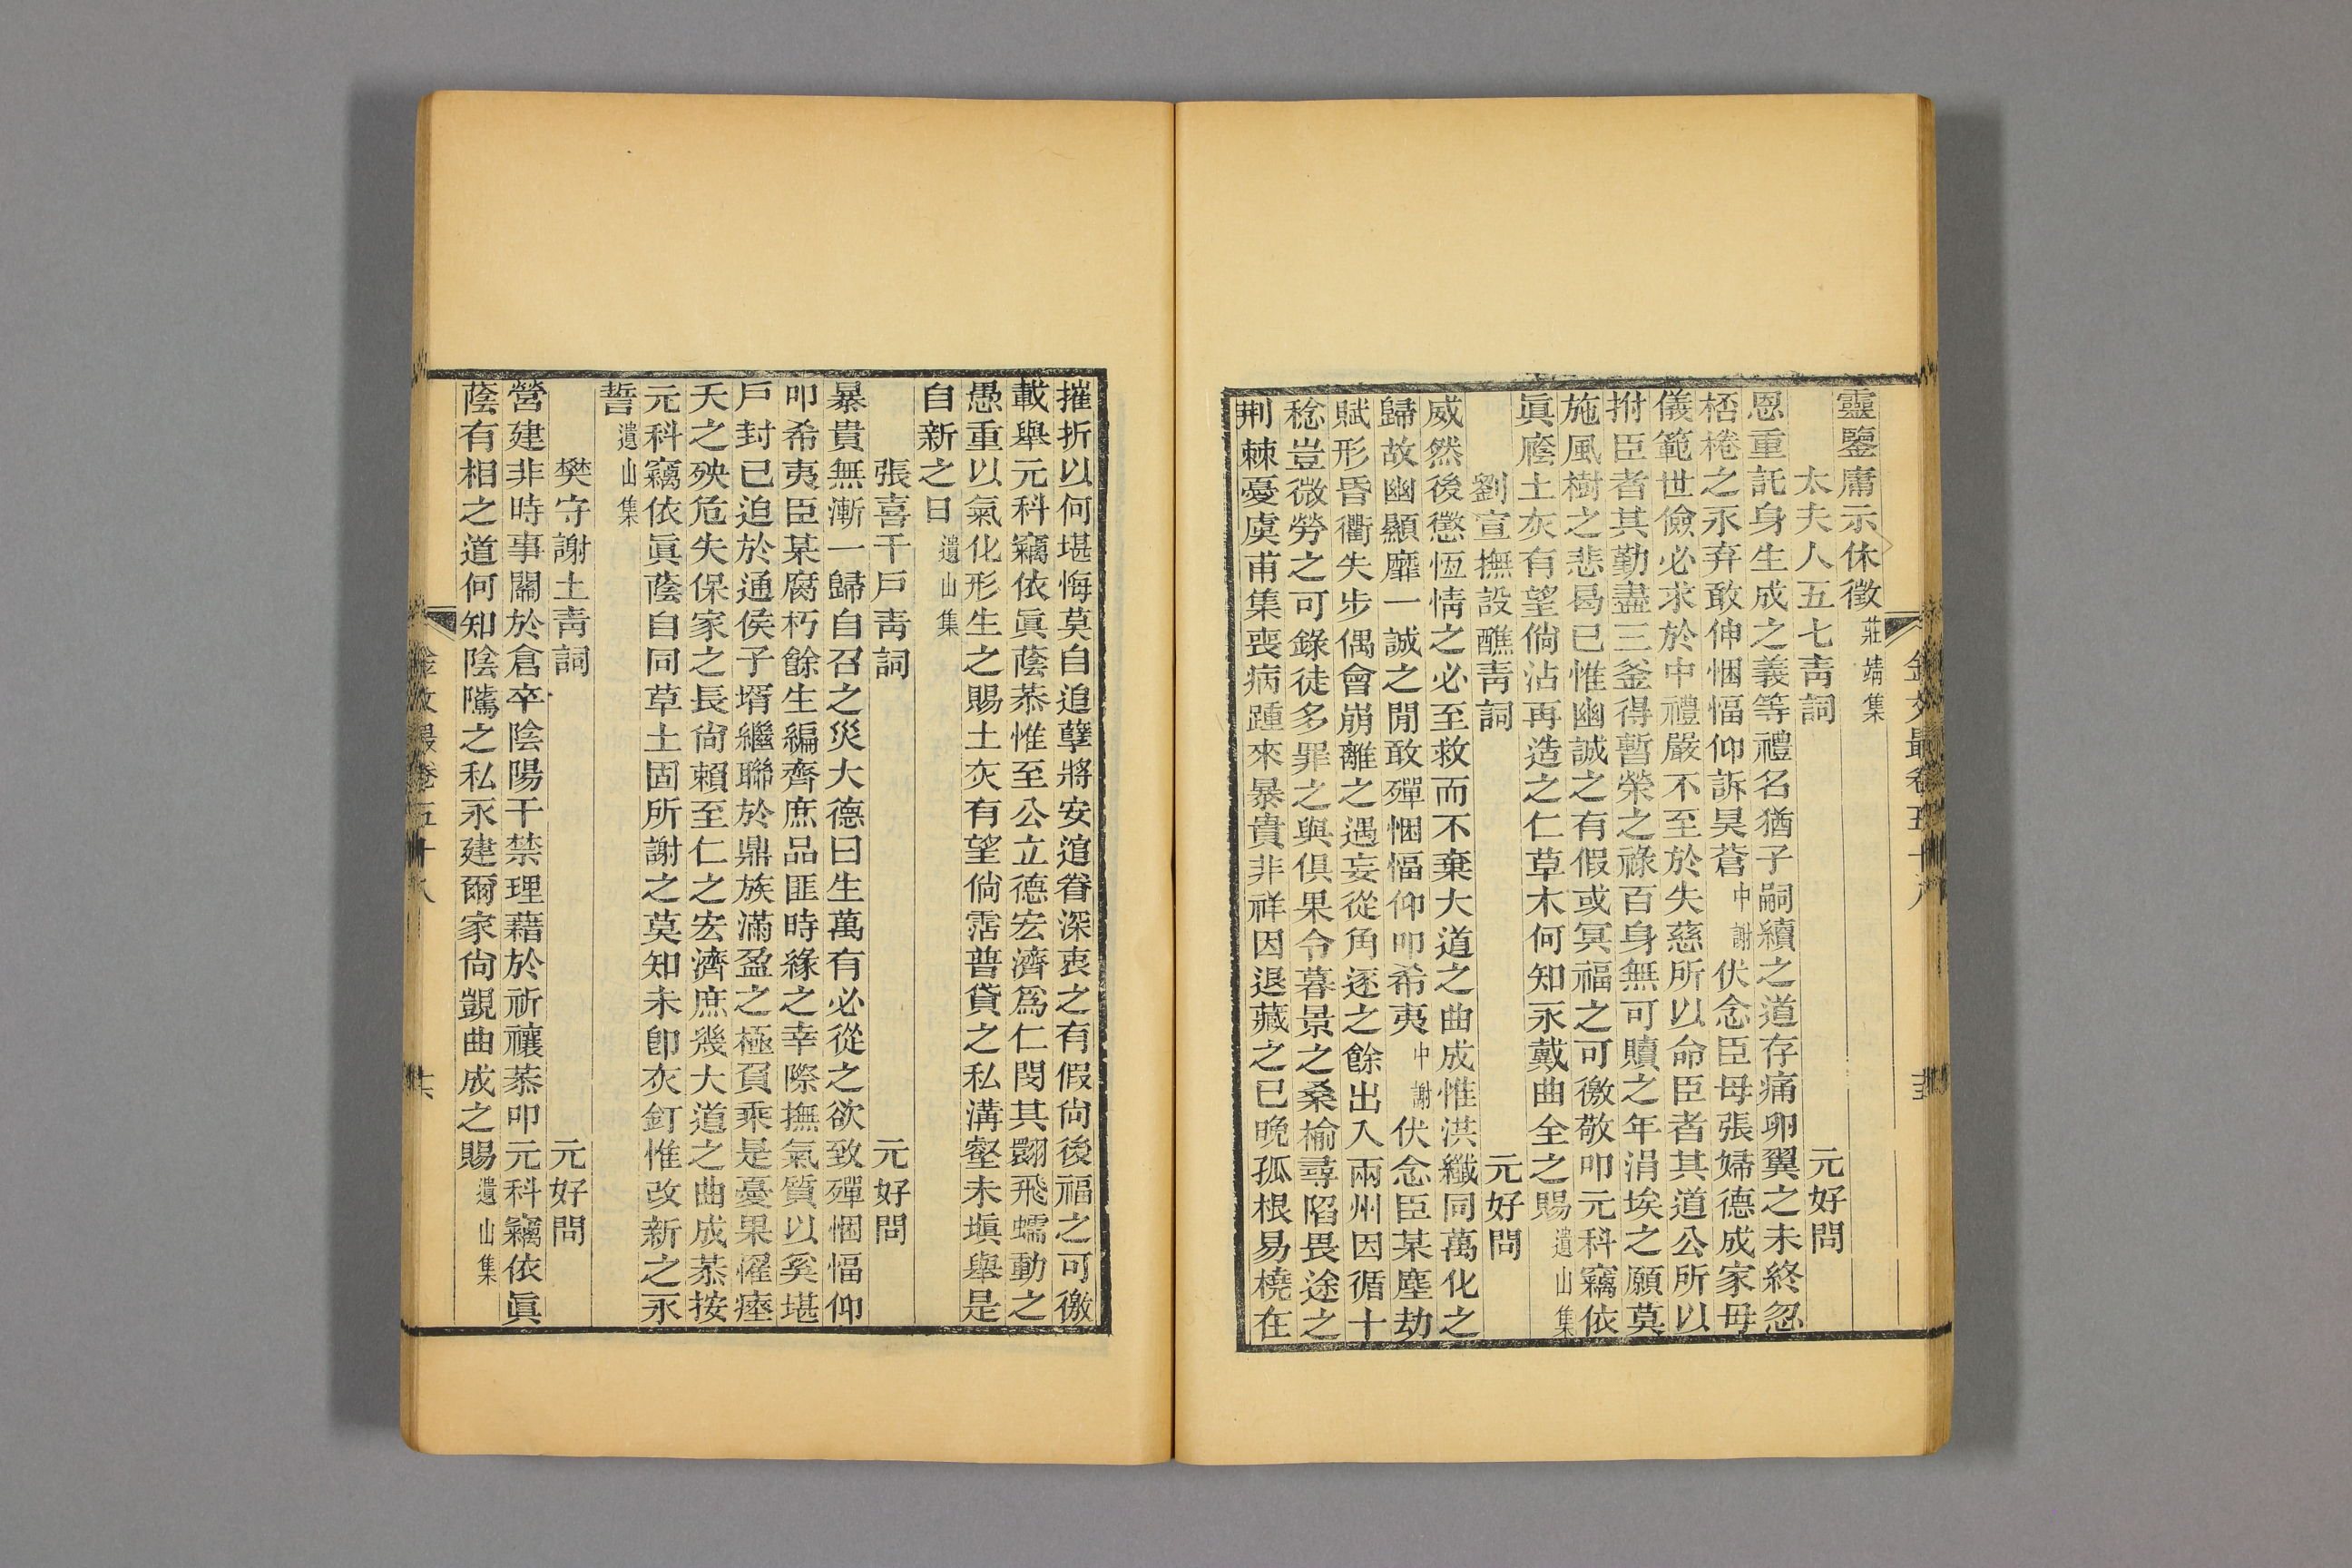 靈鑒庸示休徵莊靖集
太夫人五七靑詞 元好問
恩重託身生成之義等禮名猶子嗣續之道存痛卵翼之未終忽
桮棬之永弃敢伸悃愊仰訴昊蒼中謝伏念臣母張婦德成家母
儀範世儉必求於中禮嚴不至於失慈所以命臣者其道公所以
拊臣者其勤盡三釜得暫榮之祿百身無可贖之年涓埃之願莫
施風樹之悲曷已惟幽誠之有假或冥福之可徼敬叩元科竊依
眞廕土灰有望倘沾再造之仁草木何知永戴曲全之賜遺山集
劉宣撫設醮靑詞 元好問
威然後懲恆情之必至救而不棄大道之曲成惟洪纖同萬化之
歸故幽顯靡一誠之閒敢殫悃愊仰叩希夷中謝伏念臣某塵劫
賦形昏衢失步偶會崩離之遇妄從角逐之餘出入兩州因循十
稔豈微勞之可錄徒多罪之與俱果令暮景之桑榆尋陷畏途之
荆棘憂虞甫集喪病踵來暴貴非祥因退藏之已晩孤根易橈在
金文最卷五十八
摧折以何堪悔莫自追孽將安逭眷深衷之有假尙後福之可徼
載舉元科竊依眞蔭恭惟至公立德宏濟爲仁閔其翾飛蠕動之
愚重以氣化形生之賜土灰有望倘霑普貸之私溝壑未塡舉是
自新之日遺山集
張喜千戶靑詞 元好問
暴貴無漸一歸自召之災大德曰生萬有必從之欲致殫悃愊仰
叩希夷臣某腐朽餘生編齊庶品匪時緣之幸際撫氣質以奚堪
戶封已迫於通侯子壻繼聯於鼎族滿盈之極負乘是憂果罹瘞
夭之殃危失保家之長尙賴至仁之宏濟庶幾大道之曲成恭按
元科竊依眞蔭自同草土固所謝之莫知未卽灰釘惟改新之永
誓遺山集
樊守謝土靑詞 元好問
營建非時事關於倉卒陰陽干禁理藉於祈禳恭叩元科竊依眞
蔭有相之道何知陰隲之私永建爾家尙覬曲成之賜遺山集
金文最卷五十八